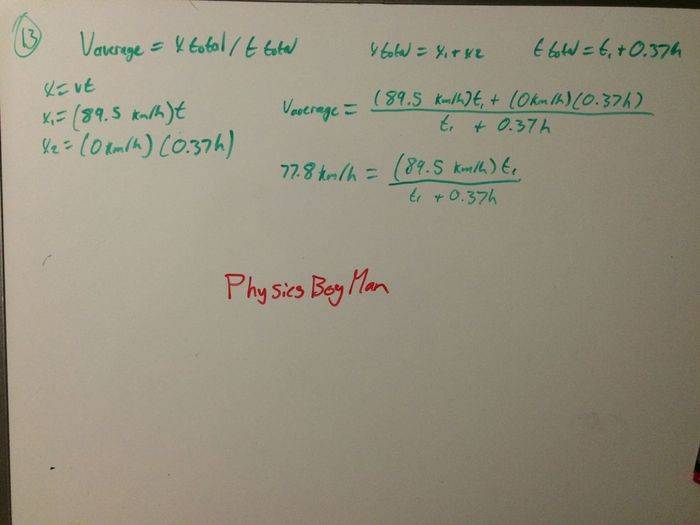 13 Vaverage = x total / t total x total = x1 + x2 t total = t1 + 0.37h
x = vt
x1 = (89.5 km/h)t
x2 = (0 km/h)(0.37h)
Vaverage = (89.5 km/h)t1 + (0 km/h)(0.37h)
t1 + 0.37h
77.8 km/h = (89.5 km/h)t1
t1 + 0.37h
Physics Boy Man